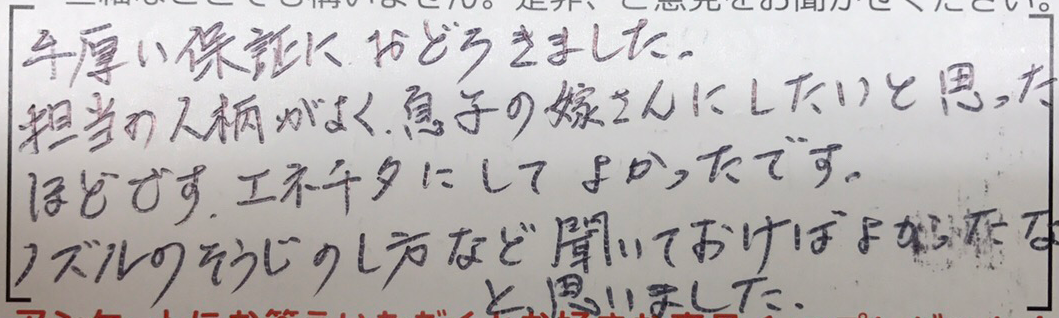 手厚い保証に おどろきました。
担当の人柄がよく、息子の嫁さんにしたいと思った
ほどです。エネチタにして よかったです。
ノズルのそうじのし方など 聞いておけばよかったな
と思いました。